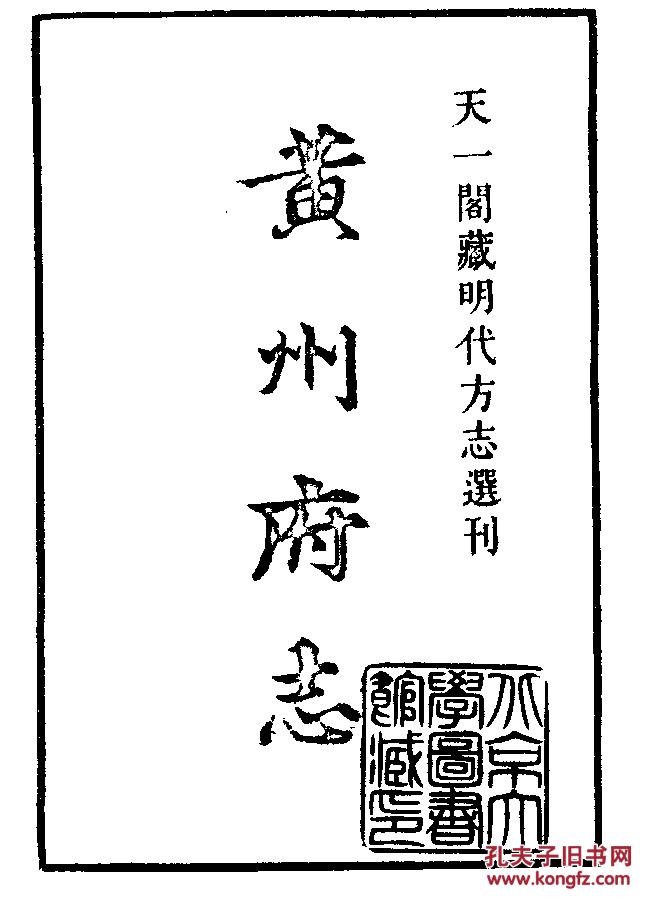 天一閣藏明代方志選刊
黄州府志
北京大
學圖書
館藏印
孔夫子旧书网
www.kongfz.com